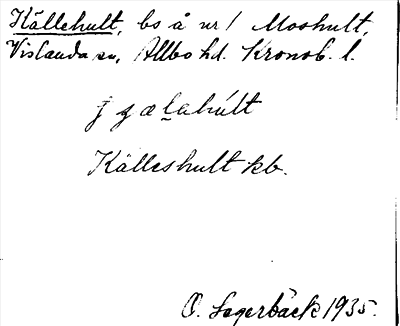 Källehult, bs å nr 1 Moshult,
Vislanda sn, Allbo hd. Kronob. l.
gælahúlt
Källeshult kb.
O. Segerbäck 1935.